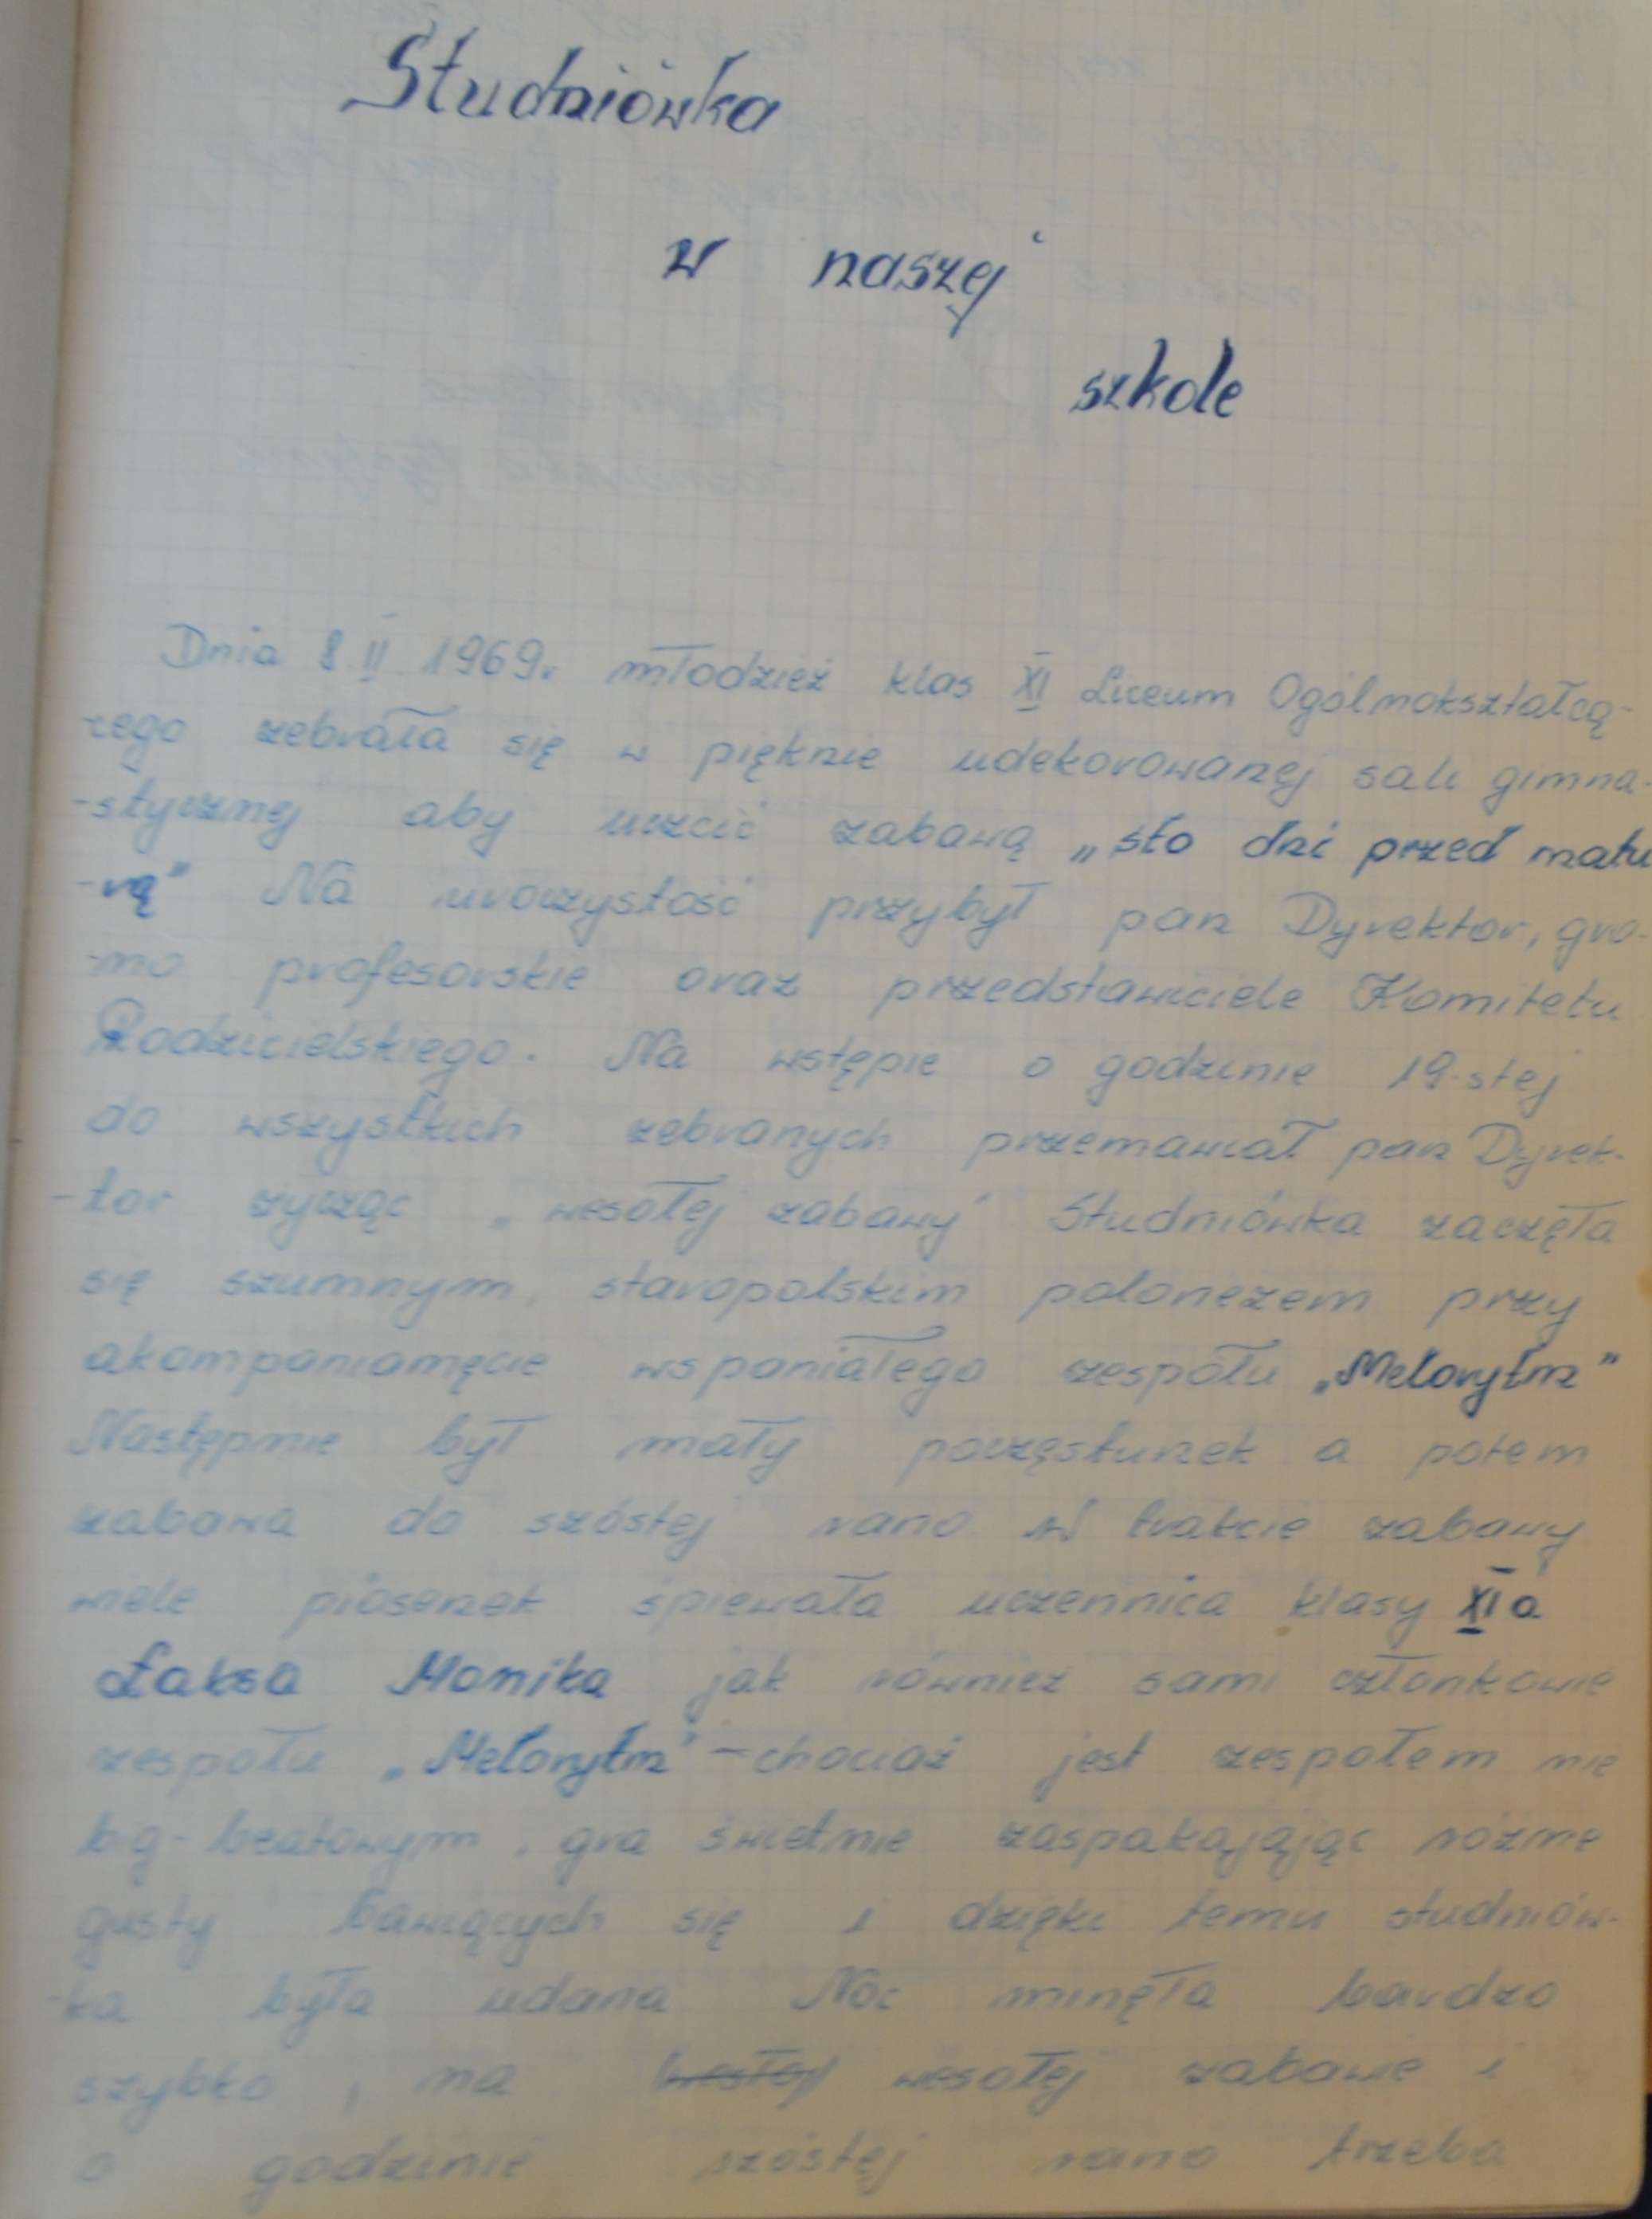 Studniówka
w naszej
szkole
Dnia 8.II 1969r młodzież klas XI Liceum Ogólnokształcą-
cego zebrała się w pięknie udekorowanej sali gimna-
-stycznej aby uczcić zabawą „sto dni przed matu
-rą" Na uroczystość przybył pan Dyrektor, gro-
-no profesorskie oraz przedstawiciele Komitetu
Rodzicielskiego. Na wstępie o godzinie 19-stej
do wszystkich zebranych przemawiał pan Dyrek-
-tor życząc „wesołej zabawy" Studniówka zaczęła
się szumnym, staropolskim polonezem przy
akompaniamęcie wspaniałego zespołu „Metorytm"
Następnie był mały poczęstunek a potem
zabawa do szóstej rano W trakcie zabawy
wiele piosenek śpiewała uczennica klasy XI a
Łaksa Monika jak również sami członkowie
zespołu „Metorytm" - chociaż jest zespołem nie
big-beatowym, gra świetnie zaspakajając różne
gusty bawiących się i dzięki temu studniów-
-ka była udana Noc minęła bardzo
szybko, na wesołej zabawie i
o godzinie szóstej rano trzeba